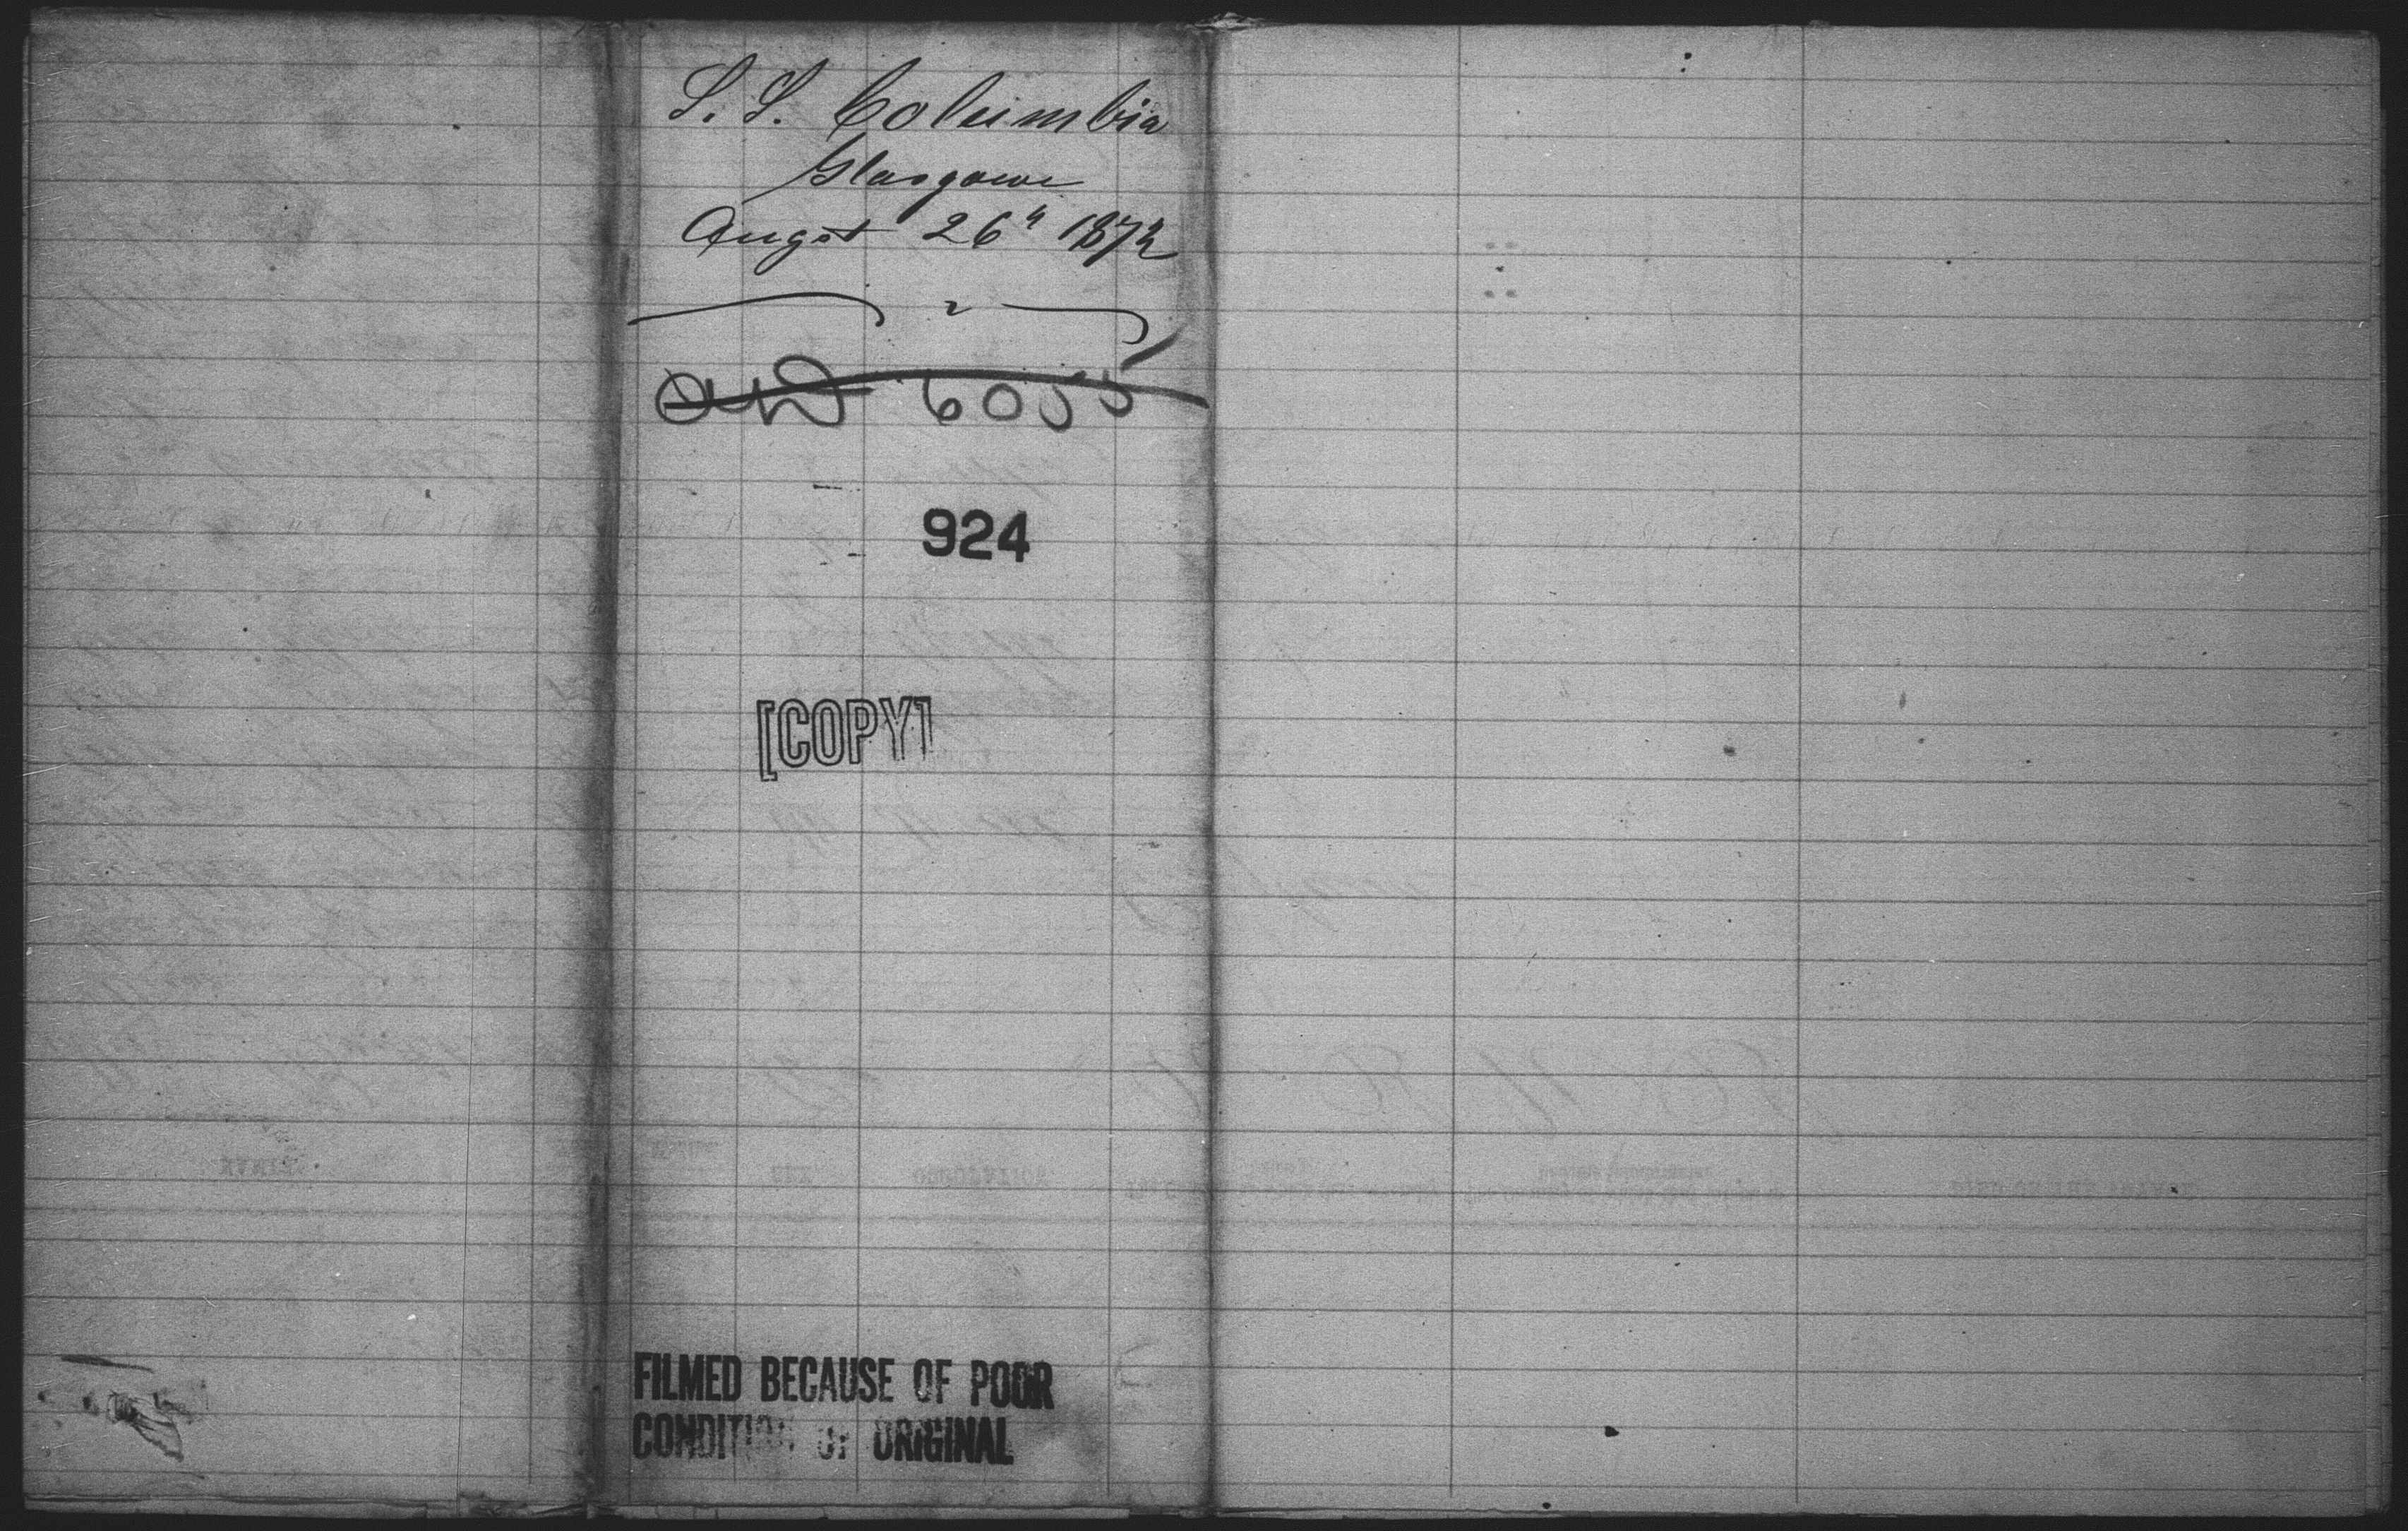 S. S. Columbia
Glasgow
Augst 26" 1872
6055
924
[COPY]
FILMED BECAUSE OF POOR
CONDITION OF ORIGINAL